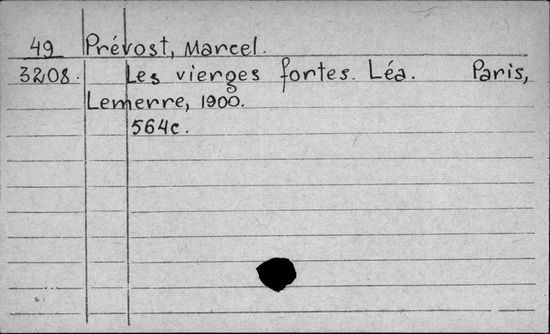 49 Prévost, Marcel.
3208. Les vierges fortes. Léa. Paris,
Lemerre, 1900.
564c.